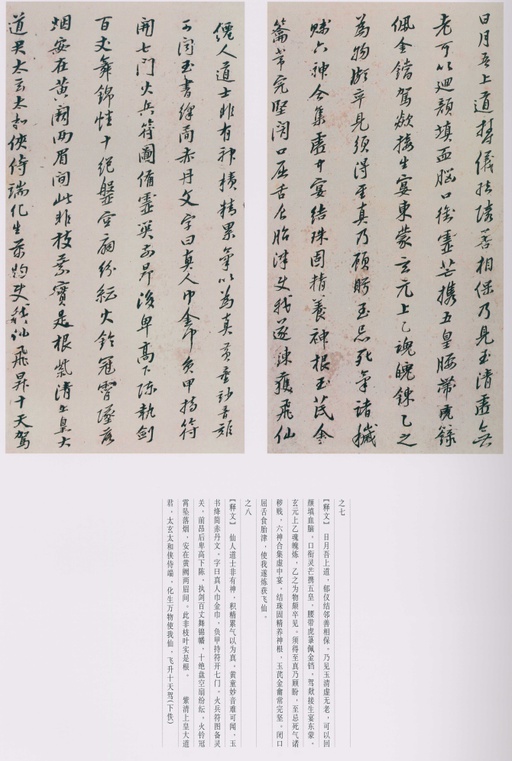 日月吾上道郁儀結璘善相保乃見玉清虛無
老可以迴顏填血腦口銜靈芒攜五皇腰帶虎籙
佩金鐺駕歘接生宴東蒙玄元上乙魂魄鍊乙之
為物頗卒見須得至真乃顧盼至忌死氣諸穢
賤六神合集虛中宴結珠固精養神根玉茋金
籥常完堅閉口屈舌食胎津使我遂鍊獲飛仙
僊人道士非有神積精累氣以為真黃童妙音難
可聞玉書絳簡赤丹文字曰真人巾金巾負甲持符
開七門火兵符圖備靈關前昂後卑高下陳執劍
百丈舞錦幡十絕盤空扇紛紜火鈴冠霄墜落
烟安在黃闕兩眉間此非枝葉實是根紫清上皇大
道君太玄太和俠侍端化生萬物使我仙飛昇十天駕
之七
【释文】 日月吾上道，郁仪结邻善相保，乃见玉清虚无老，可以回
颜填血脑，口衔灵芒携五皇，腰带虎箓佩金铛，驾歘接生宴东蒙，
玄元上乙魂魄炼，乙之为物颇卒见，须得至真乃顾盼，至忌死气诸
秽贱，六神合集虚中宴，结珠固精养神根，玉茋金籥常完坚，闭口
屈舌食胎津，使我遂炼获飞仙。
之八
【释文】 仙人道士非有神，积精累气以为真，黄童妙音难可闻，玉
书绛简赤丹文，字曰真人巾金巾，负甲持符开七门，火兵符图备灵
关，前昂后卑高下陈，执剑百丈舞锦幡，十绝盘空扇纷纭，火铃冠
霄坠落烟，安在黄阙两眉间，此非枝叶实是根。 紫清上皇大道
君，太玄太和侠侍端，化生万物使我仙，飞升十天驾(下佚)